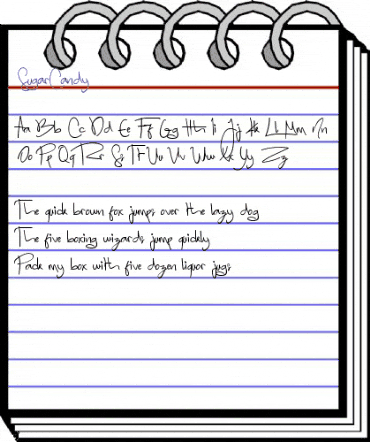 SugarCandy
Aa Bb Cc Dd Ee Ff Gg Hh Ii Jj Kk Ll Mm Nn
Oo Pp Qq Rr Ss Tt Uu Vv Ww Xx Yy Zz
The quick brown fox jumps over the lazy dog
The five boxing wizards jump quickly
Pack my box with five dozen liquor jugs